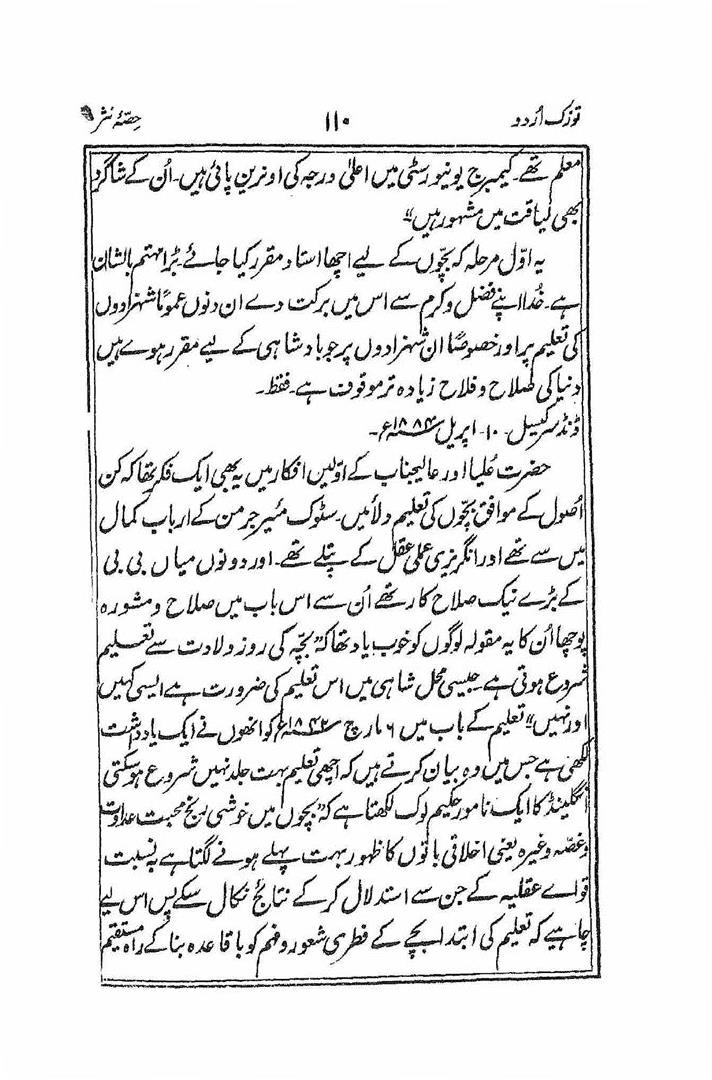 توزک اُردو ۱۱۰ حِصّۂ نثر
معلم تھے۔ کیمبرج یونیورسٹی میں اعلیٰ درجہ کی اونرین پائی ہیں۔ اُن کے شاگرد
بھی لیاقت میں مشہور ہیں"
یہ اوّل مرحلہ کہ بچّوں کے لیے اچھا استاد مقرر کیا جائے۔ بڑا مہتم بالشان
ہے۔ خُدا اپنے فضل و کرم سے اس میں برکت دے ان دنوں عموماً شہزادوں
کی تعلیم پر اور خصوصاً ان شہزادوں پر جو بادشاہی کے لیے مقرر ہوے ہیں
دنیا کی صلاح و فلاح زیادہ تر موقوف ہے۔ فقط۔
ونڈسر کیسل۔ ۱۰۔ اپریل ۱۸۸۴ء۔
حضرت عُلیا اور عالیجناب کے اوّلین افکار میں یہ بھی ایک فکر تھا کہ کن
اُصول کے موافق بچّوں کی تعلیم دلائیں۔ سٹوک مئیر جرمن کے ارباب کمال
میں سے تھے اور انگریزی عملی عقل کے پتلے تھے۔ اور دونوں میاں بی بی
کے بڑے نیک صلاح کار تھے اُن سے اس باب میں صلاح و مشورہ
پوچھا اُن کا یہ مقولہ لوگوں کو خوب یاد تھا کہ "بچّہ کی روز ولادت سے تعلیم
شروع ہوتی ہے۔ جیسی محل شاہی میں اس تعلیم کی ضرورت ہے ایسی کہیں
اور نہیں" تعلیم کے باب میں ۶ مارچ ۱۸۴۲ء کو انھوں نے ایک یادداشت
لکھی ہے جس میں وہ بیان کرتے ہیں کہ اچھی تعلیم بہت جلد نہیں شروع ہو سکتی
انگلینڈ کا ایک نامور حکیم لوک لکھتا ہے کہ "بچوں میں خوشی رنج محبت عداوت
و غصّہ وغیرہ یعنی اخلاقی باتوں کا ظہور بہت پہلے ہونے لگتا ہے بہ نسبت
قواے عقلیہ کے جن سے استدلال کر کے نتائج نکال سکے پس اس لیے
چاہیے کہ تعلیم کی ابتدا بچے کے فطری شعور و فہم کو باقاعدہ بنا کے راہ مستقیم